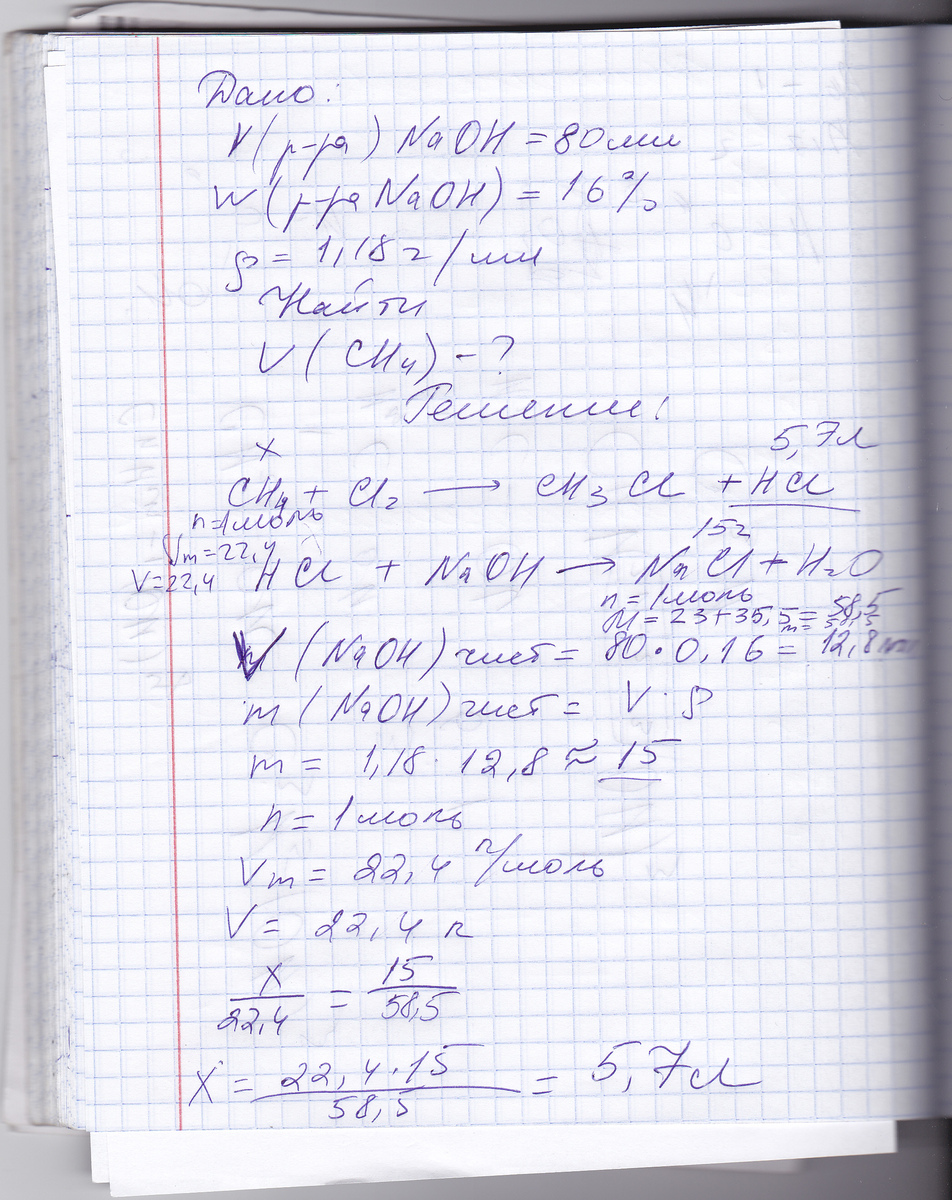 Дано:
V(р-ра) NaOH = 80 мл
W(р-ра NaOH) = 16%
ρ = 1,18 г/мл
Найти
V(CH₄) - ?
Решение:
x 5,7л
CH₄ + Cl₂ → CH₃Cl + HCl
n=1моль
Vm=22,4
V=22,4
15г
HCl + NaOH → NaCl + H₂O
n=1моль
M=23+35,5=58,5
m=58,5
V(NaOH)чист = 80·0,16 = 12,8мл
m(NaOH)чист = V·ρ
m = 1,18·12,8 ≈ 15
n = 1моль
Vm = 22,4 л/моль
V = 22,4 л
x/22,4 = 15/58,5
x = 22,4·15/58,5 = 5,7л